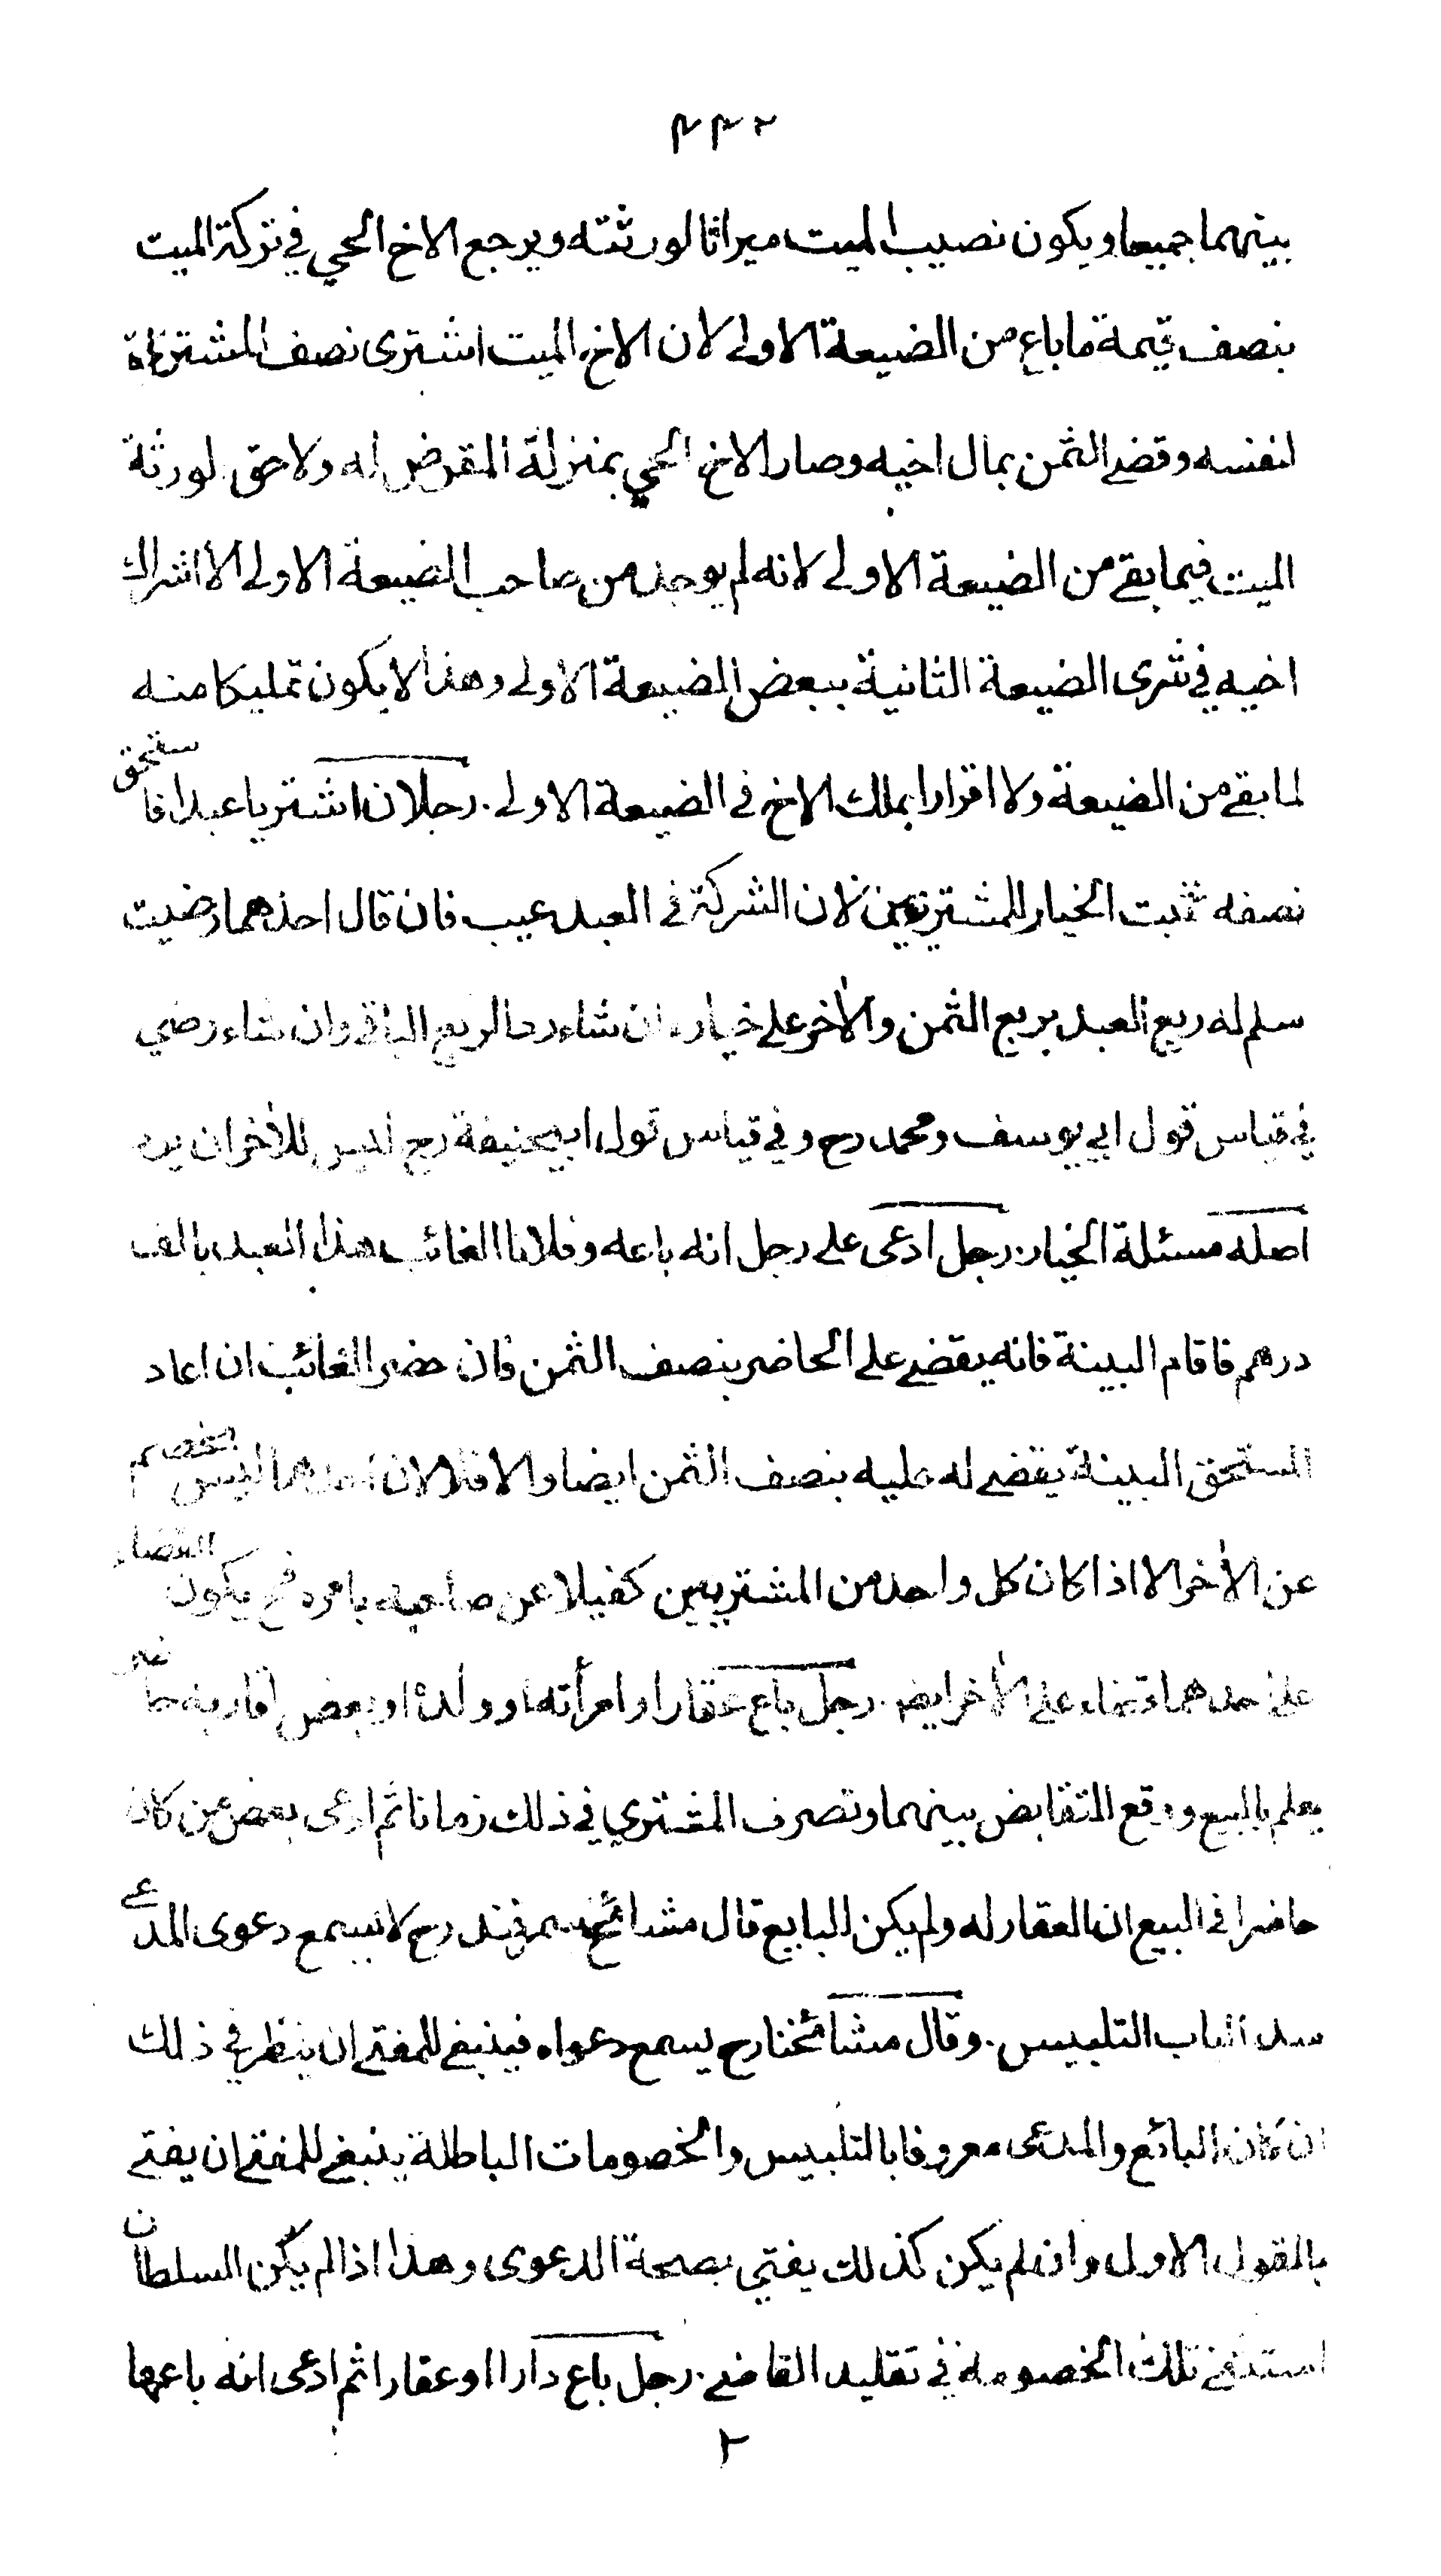 ٣٣٢
بينهما جميعا ويكون نصيب الميت ميراثا لورثته ويرجع الاخ الحي في تركة الميت
بنصف قيمة ما باع من الضيعة الاولى لان الاخ الميت اشترى نصف المشتراة
لنفسه وقضى الثمن بمال اخيه وصار الاخ الحي بمنزلة المقرض له ولا حق لورثة
الميت فيما بقي من الضيعة الاولى لانه لم يوجد من صاحب الضيعة الاولى الا اشراك
اخيه في شرى الضيعة الثانية ببعض الضيعة الاولى وهذا لا يكون تمليكا منه
لما بقي من الضيعة ولا اقرارا بملك الاخ في الضيعة الاولى . رجلان اشتريا عبدا فاستحق
نصفه ثبت الخيار للمشتريين لان الشركة في العبد عيب فان قال احدهما رضيت
سلم له ربع العبد بربع الثمن والآخر على خياره ان شاء رد الربع الباقي وان شاء رضي
في قياس قول ابي يوسف ومحمد رح وفي قياس قول ابي حنيفة رح ليس للآخر ان يرد
اصله مسئلة الخيار . رجل ادعى على رجل انه باعه وفلانا الغائب هذا العبد بالف
درهم فاقام البينة فانه يقضي على الحاضر بنصف الثمن فان حضر الغائب ان اعاد
المستحق البينة يقضي له عليه بنصف الثمن ايضا والا فلا لان احدهما ليس بخصم
عن الآخر الا اذا كان كل واحد من المشتريين كفيلا عن صاحبه بامره فح يكون القضاء
على احدهما قضاء على الآخر ايضا . رجل باع عقارا وامرأته او ولده او بعض اقاربه حاضر
يعلم بالبيع ووقع التقابض بينهما وتصرف المشتري في ذلك زمانا ثم ادعى بعض من كان
حاضرا في البيع ان العقار له ولم يكن للبايع قال مشائخ سمرقند رح لا تسمع دعوى المدعي
سدا لباب التلبيس . وقال مشائخنا رح يسمع دعواه فينبغي للمفتي ان ينظر في ذلك
ان كان البائع والمدعى معروفا بالتلبيس والخصومات الباطلة ينبغي للمفتي ان يفتي
بالقول الاول وان لم يكن كذلك يفتي بصحة الدعوى وهذا اذا لم يكن السلطان
استثنى تلك الخصومة في تقليد القاضي . رجل باع دارا او عقارا ثم ادعى انه باعها
٢